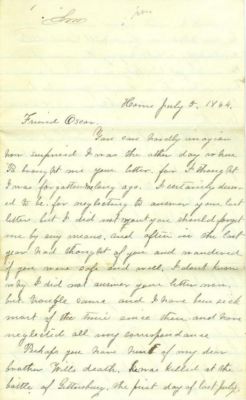 Home July 5, 1864.
Friend Oscar.
You can hardly imagian
how surprised I was the other day when
brought me your letter, for I thought
I was forgotten long ago. I certainly deserv
ed to be for neglecting to answer your last
letter but I did not want you should forget
me by any means, and often in the last
year had thought of you and wondered
if you were safe and well, I don't know
why I did not answer your letter
but and I have been sick
most of the time since then and have
neglected all my correspondance
Perhaps you have of my dear
brother Wills death. he was killed at the
battle of Gettesburg, the first day of last July.